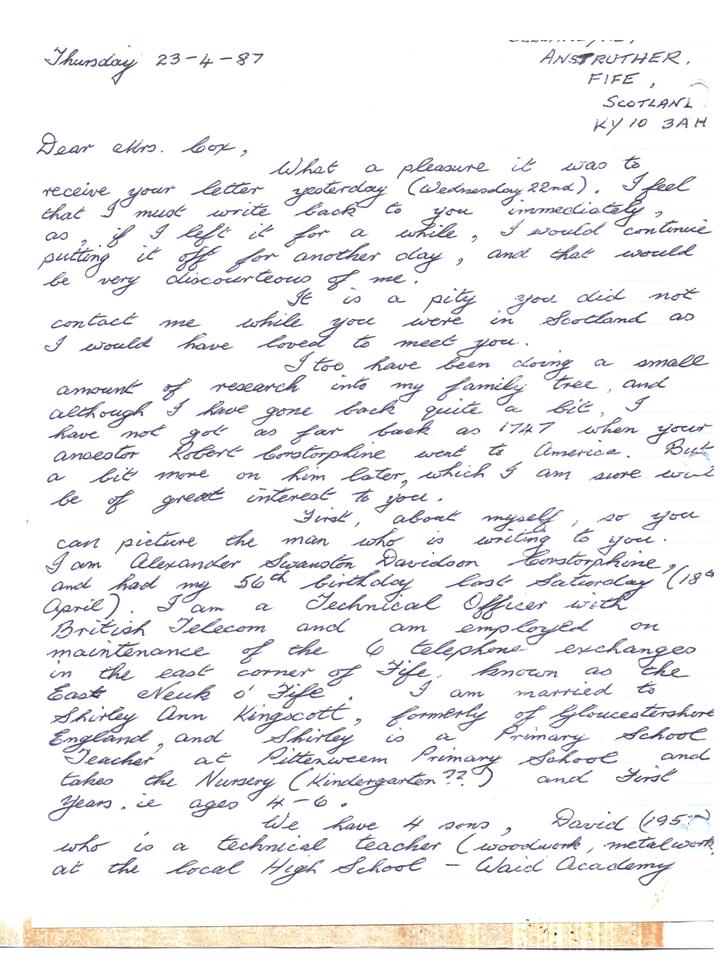 Thursday 23-4-87
ANSTRUTHER,
FIFE,
SCOTLAN
KY10 3AH
Dear Mrs. Cox,
What a pleasure it was to
receive your letter yesterday (Wednesday 22nd). I feel
that I must write back to you immediately,
as, if I left it for a while, I would continue
putting it off for another day, and that would
be very discourteous of me.
It is a pity you did not
contact me while you were in Scotland as
I would have loved to meet you.
I too have been doing a small
amount of research into my family tree, and
although I have gone back quite a bit, I
have not got as far back as 1747 when your
ancestor Robert Corstorphine went to America. But
a bit more on him later, which I am sure will
be of great interest to you.
First, about myself, so you
can picture the man who is writing to you.
I am Alexander Swanston Davidson Corstorphine,
and had my 56th birthday last Saturday (18th
April). I am a Technical Officer with
British Telecom and am employed on
maintenance of the 6 telephone exchanges
in the east corner of Fife, known as the
East Neuk o' Fife. I am married to
Shirley Ann Kingscott, formerly of Gloucestershire
England, and Shirley is a Primary School
Teacher at Pittenweem Primary School and
takes the Nursery (Kindergarten??) and First
Years. ie ages 4-6.
We have 4 sons, David
who is a technical teacher (woodwork, metalwork
at the local High School - Waid Academy